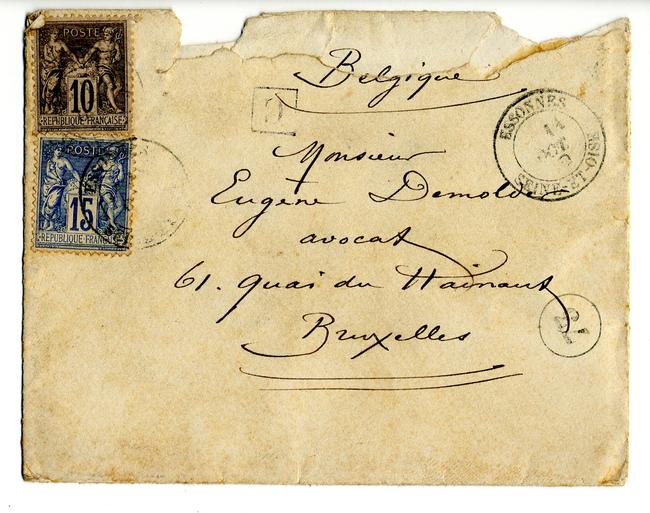 POSTE
10
REPUBLIQUE FRANÇAISE
POSTE
15
REPUBLIQUE FRANÇAISE
Belgique
ESSONNES
14
OCT
SEINE-ET-OISE
Monsieur
Eugène Demolder
avocat
61. quai du Hainaut
Bruxelles